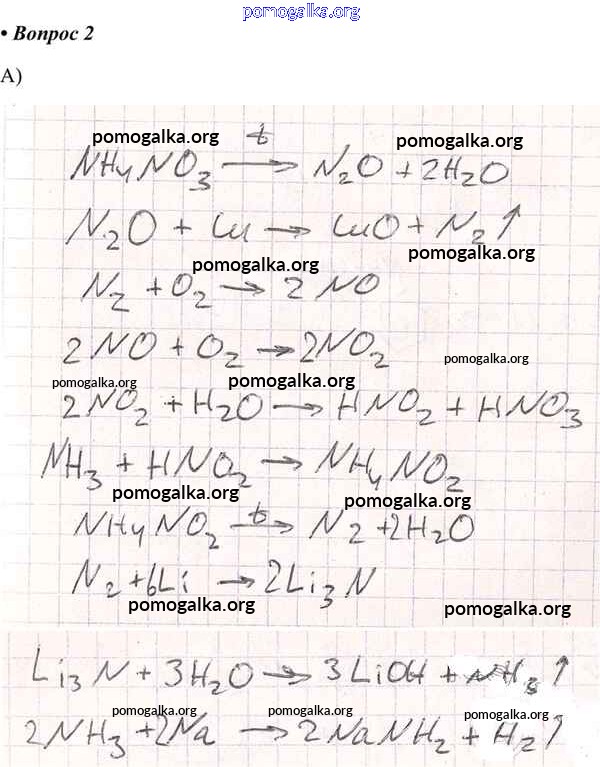 pomogalka.org
• Вопрос 2
А)
pomogalka.org pomogalka.org
NH4NO3 —t→ N2O + 2H2O
N2O + Cu → CuO + N2↑
pomogalka.org pomogalka.org
N2 + O2 → 2NO
2NO + O2 → 2NO2
pomogalka.org
pomogalka.org pomogalka.org
2NO2 + H2O → HNO2 + HNO3
NH3 + HNO2 → NH4NO2
pomogalka.org pomogalka.org
NH4NO2 —t→ N2 + 2H2O
N2 + 6Li → 2Li3N
pomogalka.org pomogalka.org
Li3N + 3H2O → 3LiOH + NH3↑
pomogalka.org pomogalka.org pomogalka.org
2NH3 + 2Na → 2NaNH2 + H2↑